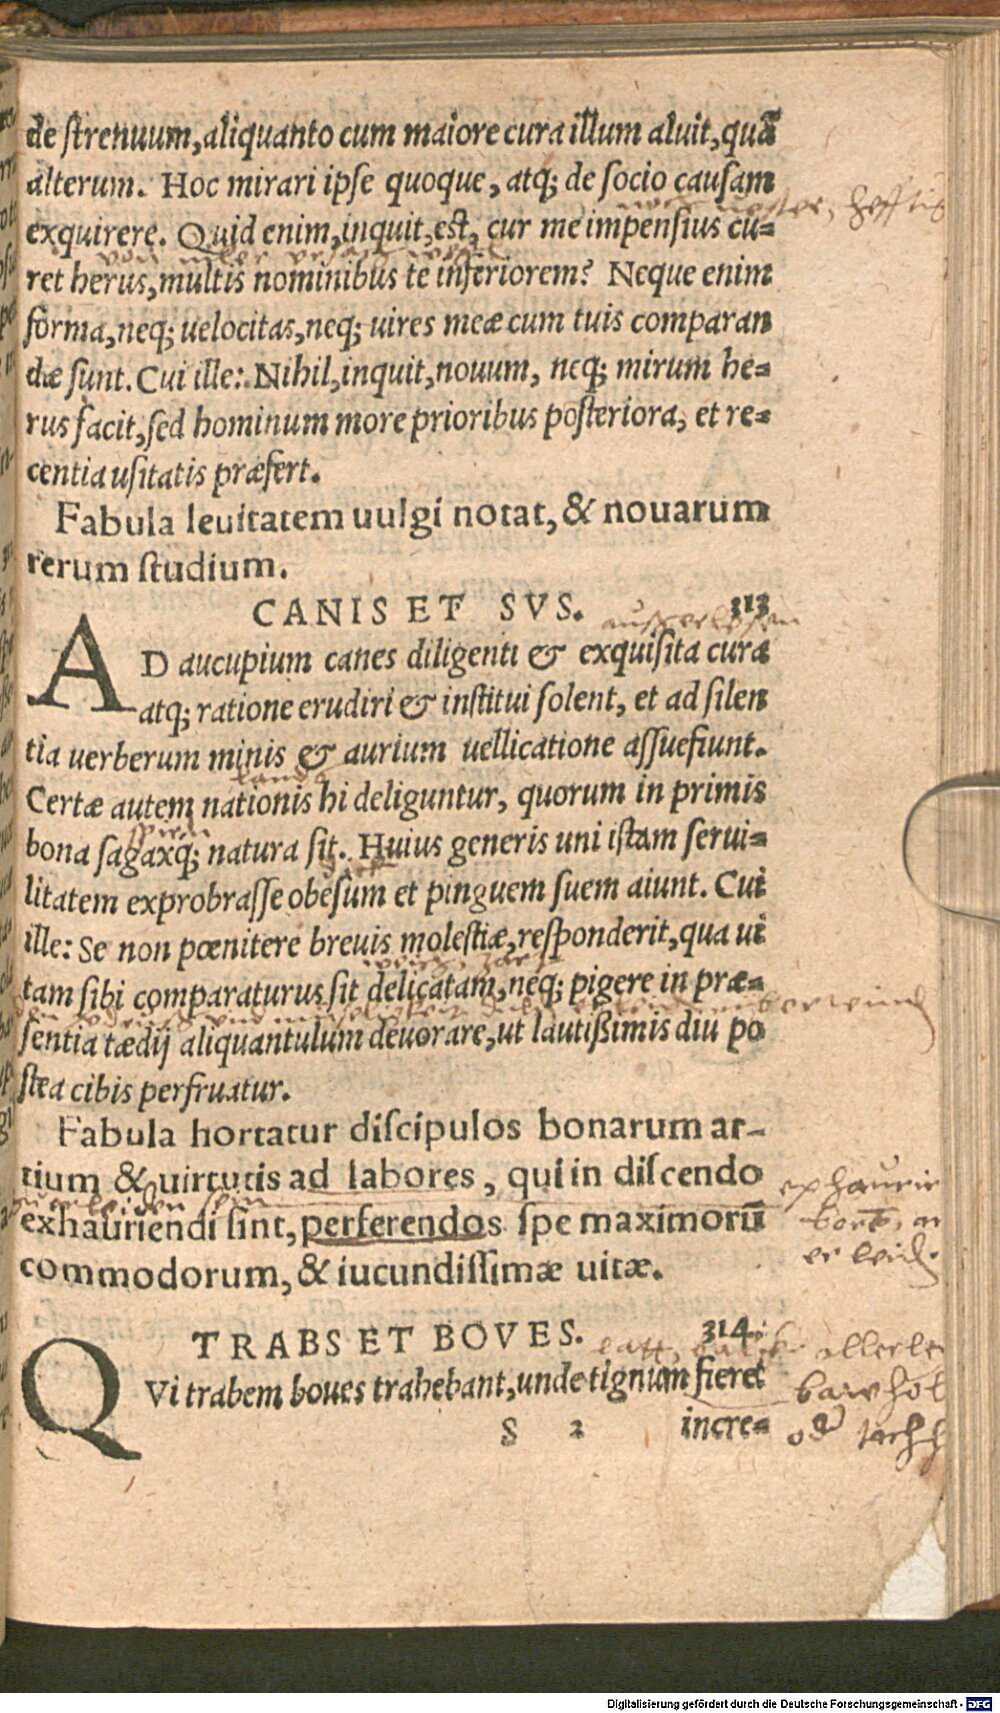 de ſtrenuum, aliquanto cum maiore cura illum aluit, quã
alterum. Hoc mirari ipſe quoque, atq; de ſocio cauſam
exquirere. Quid enim, inquit, est, cur me impenſius cu=
ret herus, multis nominibus te inferiorem? Neque enim
forma, neq; uelocitas, neq; uires meæ cum tuis comparan
dæ ſunt. Cui ille: Nihil, inquit, nouum, neq; mirum he=
rus facit, ſed hominum more prioribus poſteriora, et re=
centia uſitatis præfert.
Fabula leuitatem uulgi notat, & nouarum
rerum ſtudium.
CANIS ET SVS. 313
AD aucupium canes diligenti & exquiſita cura
atq; ratione erudiri & inſtitui ſolent, et ad ſilen
tia uerberum minis & aurium uellicatione aſſuefiunt.
Certæ autem nationis hi deliguntur, quorum in primis
bona ſagaxq; natura ſit. Huius generis uni iſtam ſerui=
litatem exprobraſſe obeſum et pinguem ſuem aiunt. Cui
ille: Se non pœnitere breuis moleſtiæ, reſponderit, qua ui
tam ſibi comparaturus ſit delicatam, neq; pigere in præ=
ſentia tædij aliquantulum deuorare, ut lautißimis diu po
ſtea cibis perfruatur.
Fabula hortatur diſcipulos bonarum ar-
tium & uirtutis ad labores, qui in diſcendo
exhauriendi ſint, perferendos ſpe maximorũ
commodorum, & iucundiſſimæ uitæ.
TRABS ET BOVES. 314.
QVi trabem boues trahebant, unde tignum fieret
S 2 incre=
Digitalisierung gefördert durch die Deutsche Forschungsgemeinschaft - DFG